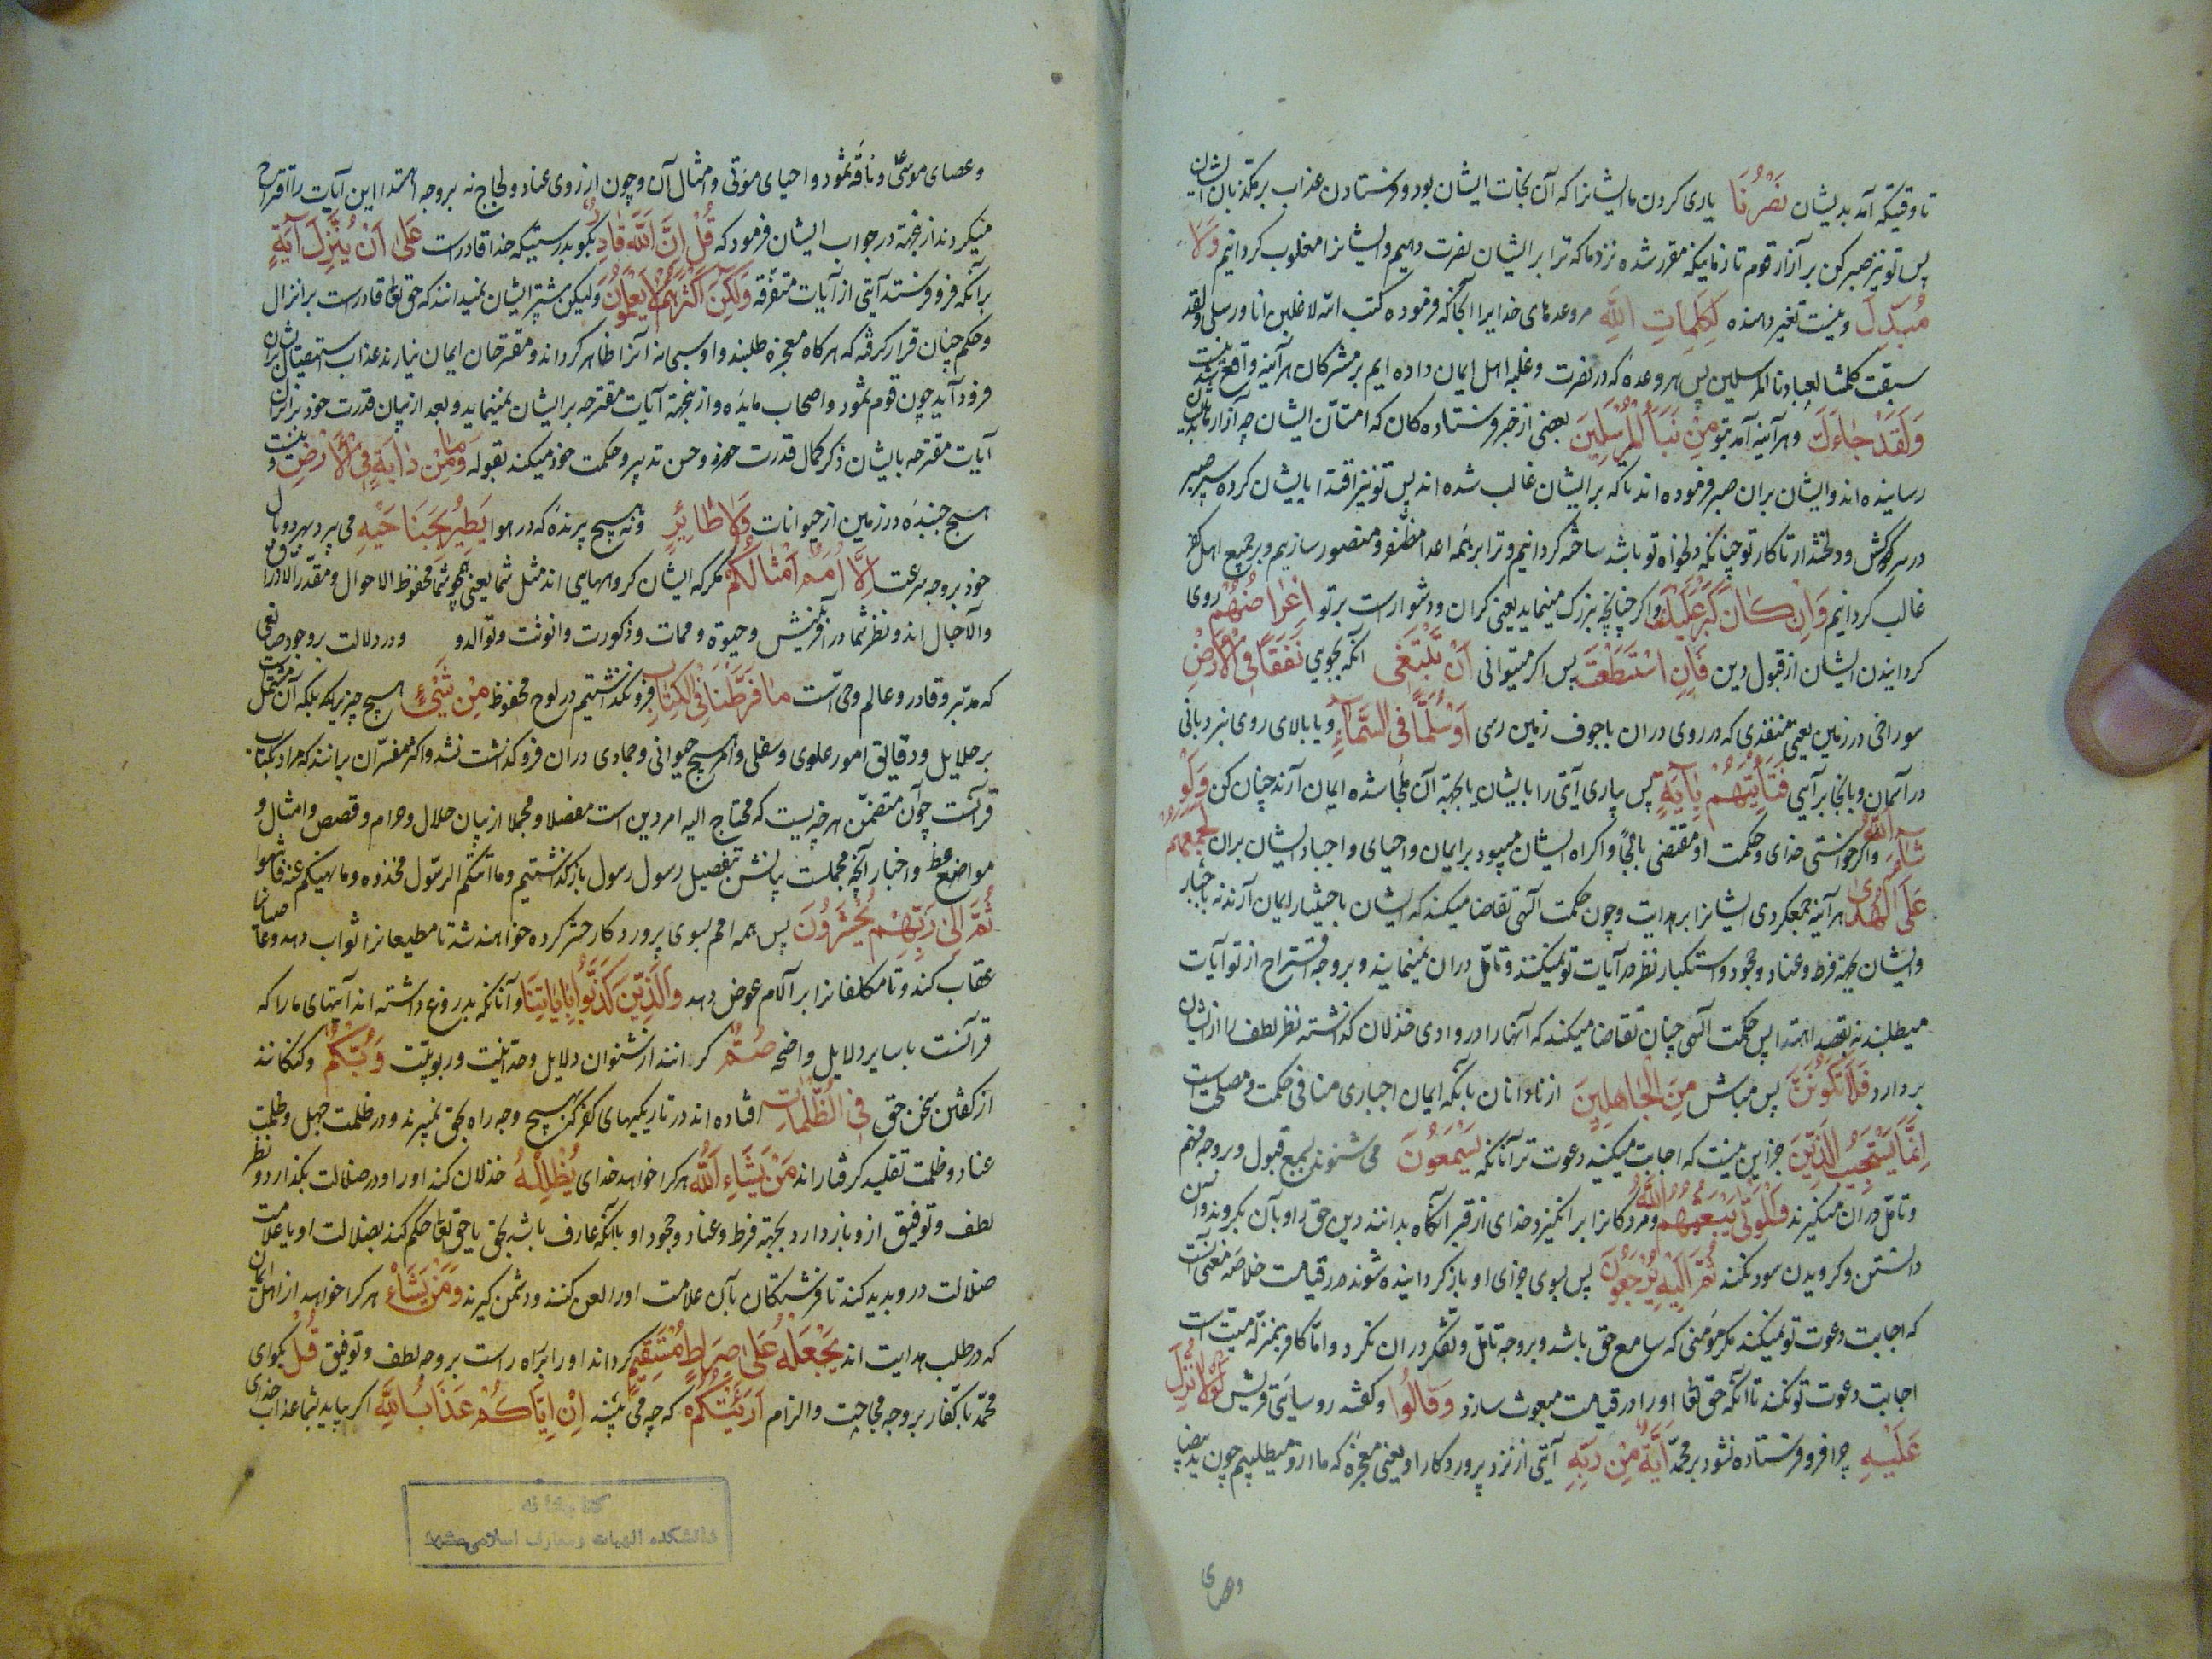 تا وقتیکه آمد بدیشان نَصْرُنَا یاری کردن ما ایشانرا که آن نجات ایشان بود و فرستادن عذاب بر مکذبان ایشان
پس تو نیز صبر کن بر آزار قوم تا زمانیکه مقرر شده نزد ما که ترا بر ایشان نصرت دهیم و ایشانرا مغلوب گردانیم وَلَا
مُبَدِّلَ و نیست تغیر دهنده لِكَلِمَاتِ اللَّهِ مر وعدهای خدایرا آنجا که فرموده کتب الله لاغلبن انا و رسلی و لقد
سبقت کلمتنا لعبادنا المرسلین پس هر وعدهٔ که در نصرت و غلبه اهل ایمان داده ایم بر مشرکان هر آینه واقع شدنیست
وَلَقَدْ جَاءَكَ و هر آینه آمد بتو مِنْ نَبَإِ الْمُرْسَلِينَ بعضی از خبر فرستاده کان که امتان ایشان چه آزار بدیشان
رسانیده اند و ایشان بران صبر فرموده اند تا که بر ایشان غالب شده اند پس تو نیز اقتدا بایشان کرده سپر صبر
در سر کش و دلخندار تا کار تو چنانکه دلخواه تو باشد ساخته گردانیم و ترا بر همه اعدا مظفر و منصور سازیم و بر جمیع اهل کفر
غالب گردانیم وَإِنْ كَانَ كَبُرَ عَلَيْكَ و اگر چنانچه بزرگ مینماید یعنی گران و دشوارست بر تو إِعْرَاضُهُمْ روی
گردانیدن ایشان از قبول دین فَإِنِ اسْتَطَعْتَ پس اگر میتوانی أَنْ تَبْتَغِيَ آنکه بجوی نَفَقًا فِي الْأَرْضِ
سوراخی در زمین یعنی منفذی که در روی دران با جوف زمین رسی أَوْ سُلَّمًا فِي السَّمَاءِ و یا بالای روی بنردبانی
در آسمان و بانجا برآیی فَتَأْتِيَهُمْ بِآيَةٍ پس بیاری آیتی را بایشان یا بجهة آن ملجا شده ایمان آرند چنان کن وَلَوْ
شَاءَ اللَّهُ و اگر خواستی خدای و حکمت او مقتضی بالجا و اکراه ایشان میبود بر ایمان و احیای و اجبار ایشان بران لَجَمَعَهُمْ
عَلَى الْهُدَى هر آینه جمعکردی ایشانرا بر هدایت و چون حکمت الهی تقاضا میکند که ایشان باختیار ایمان آرند نه باجبار
و ایشان بجهة فرط و عناد و جحود و استکبار نظر در آیات تو نمیکنند و تامل دران نمینمایند و بر وجه اقتراح از تو آیات
میطلبند نه بقصد اهتدا پس حکمت الهی چنان تقاضا میکند که آنها را در وادی خذلان گذاشته نظر لطف را از ایشان
بردارد فَلَا تَكُونَنَّ پس مباش مِنَ الْجَاهِلِينَ از نادانان بآنکه ایمان اجباری منافی حکمت و مصلحت است
إِنَّمَا يَسْتَجِيبُ الَّذِينَ جز این نیست که اجابت میکنند دعوت ترا آنانکه يَسْمَعُونَ می شنوند بسمع قبول و بر وجه فهم
و تامل دران مینگرند وَالْمَوْتَى يَبْعَثُهُمُ اللَّهُ و مردکانرا برانگیزد خدای از قبر آنگاه بدانند دین حق را و بآن بگروند و این
دانستن و گرویدن سود نکند ثُمَّ إِلَيْهِ يُرْجَعُونَ پس بسوی جزای او بازگردانیده شوند در قیامت خلاصه معنی آنست
که اجابت دعوت تو نمیکند مگر مؤمنی که سامع حق باشد و بر وجه تامل و تفکر دران نگرد و اما کافر بمنزلهٔ میت است
اجابت دعوت تو نکند تا آنکه حق تعالی او را در قیامت مبعوث سازد وَقَالُوا و گفتند رؤسای قریش لَوْلَا نُزِّلَ
عَلَيْهِ چرا فرو فرستاده نشود بر محمد آيَةٌ مِنْ رَبِّهِ آیتی از نزد پروردگار او یعنی معجزهٔ که ما ازو میطلبیم چون ید بیضا
وعصای
و عصای موسی و ناقهٔ ثمود و احیای موتی و امثال آن و چون از روی عناد و لجاج نه بر وجه اهتدا این آیات را اقتراح
میکردند ازینجهة در جواب ایشان فرمود که قُلْ إِنَّ اللَّهَ قَادِرٌ بگو بدرستیکه خدا قادرست عَلَى أَنْ يُنَزِّلَ آيَةً
بر آنکه فرو فرستد آیتی از آیات متفرقه وَلَكِنَّ أَكْثَرَهُمْ لَا يَعْلَمُونَ و لیکن بیشتر ایشان نمیدانند که حق تعالی قادرست بر انزال
و حکم چنان قرار گرفته که هر گاه معجزه طلبند و او سبحانه آنرا ظاهر گرداند و مقترحان ایمان نیارند عذاب استیصال بر ایشان
فرود آید چون قوم ثمود و اصحاب مایده و ازینجهة آیات مقترحه بر ایشان نمینماید و بعد از بیان قدرت خود بر انزال
آیات مقترحه بایشان ذکر کمال قدرت خود و حسن تدبیر و حکمت خود میکند بقوله وَمَا مِنْ دَابَّةٍ فِي الْأَرْضِ و نیست
هیچ جنبنده در زمین از حیوانات وَلَا طَائِرٍ و نه هیچ پرندهٔ که در هوا يَطِيرُ بِجَنَاحَيْهِ می پرد بهر دو بال
خود بر وجه سرعت إِلَّا أُمَمٌ أَمْثَالُكُمْ مگر که ایشان گروههایی اند مثل شما یعنی همچو شما محفوظ الاحوال و مقدر الارزاق
والآجال اند و نظر شما در آفرینش و حیوة و ممات و ذکورت و انوثت و توالد و در دلالت بر وجود صانعی
که مدبر و قادر و عالم و حی است مَا فَرَّطْنَا فِي الْكِتَابِ فرو نگذاشتیم در لوح محفوظ مِنْ شَيْءٍ هیچ چیزی که بلکه آن مشتمل است
بر جلایل و دقایق امور علوی و سفلی و امر هیچ حیوانی و جمادی دران فرو گذاشت نشده و اکثر مفسران برانند که مراد بکتاب
قرآنست چه آن متضمن هر چیزیست که محتاج الیه امر دین است مفصلا و مجملا از بیان حلال و حرام و قصص و امثال و
مواعظ و اخبار آنچه مجملست بیانش بتفصیل رسول رسول بازگذاشتیم و ما آتیکم الرسول فخذوه و ما نهیکم عنه فانتهوا
ثُمَّ إِلَى رَبِّهِمْ يُحْشَرُونَ پس همه امم بسوی پروردگار حشر کرده خواهند شد تا مطیعانرا ثواب دهد و عاصیانرا
عقاب کند و تا مکلفانرا بر آلام عوض دهد وَالَّذِينَ كَذَّبُوا بِآيَاتِنَا و آنانکه بدروغ داشته اند آیتهای ما را که
قرآنست با سایر دلایل واضحه صُمٌّ کرانند از شنوان دلایل وحدانیت و ربوبیت وَبُكْمٌ و گنگانند
از گفتن سخن حق فِي الظُّلُمَاتِ افتاده اند در تاریکیهای کفر که بهیچ وجه راه بحق نمیبرند و در ظلمت جهل و ظلمت
عناد و ظلمت تقلید گرفتارند مَنْ يَشَاءِ اللَّهُ هر کرا خواهد خدای يُضْلِلْهُ خذلان کند او را و در ضلالت بگذارد و نظر
لطف و توفیق ازو باز دارد بجهة فرط و عناد و جحود او با آنکه عارف باشد بحق یا حق تعالی حکم کند بضلالت او یا علامت
ضلالت درو پدید کند تا فرشتگان بآن علامت او را لعن کنند و دشمن گیرند وَمَنْ يَشَأْ هر کرا خواهد از اهل ایمان
که در طلب هدایت اند يَجْعَلْهُ عَلَى صِرَاطٍ مُسْتَقِيمٍ گرداند او را براه راست بر وجه لطف و توفیق قُلْ بگو ای
محمد با کفار بر وجه محاجت و الزام أَرَأَيْتَكُمْ که چه می بینید إِنْ أَتَاكُمْ عَذَابُ اللَّهِ اگر بیاید بشما عذاب خدای
کتابخانه
دانشکده الهیات و معارف اسلامی مشهد